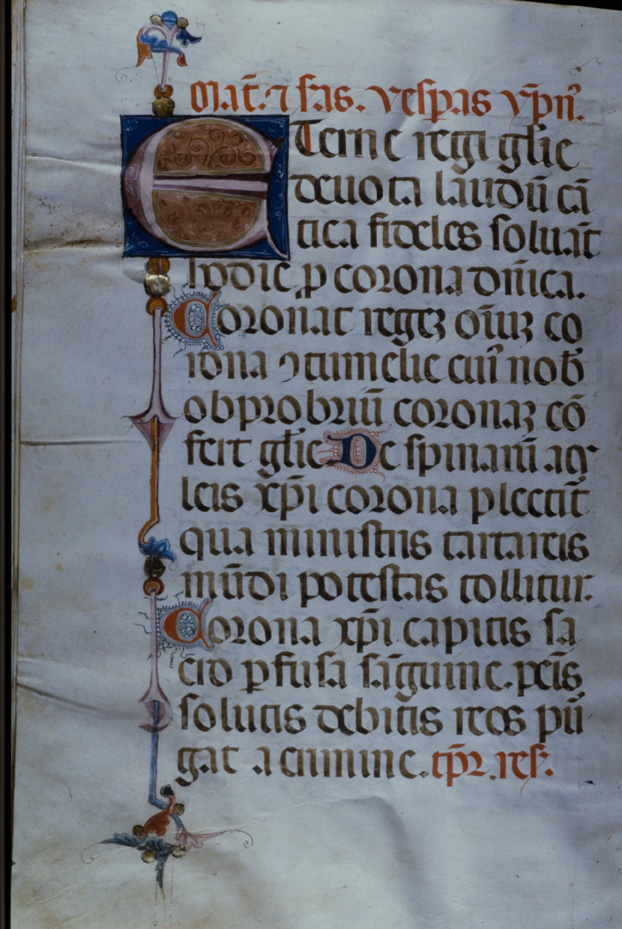 Mat̄. ⁊ s̄as. vesp̄as ym̄pn̄.
ETerne regi gl̄ie
deuota laudū cā
tica fideles soluāt
hodie ꝑ corona dn̄ica.
Coronat regeꝫ om̄iuꝫ co
rona ꝯtumelie cui᷒ nob̄
obprobriū coronaꝫ cō
fert gl̄ie De spinarū ag
leis xp̄i corona plectit᷑
qua ministris tartareis
mūdi potestas tollitur.
Corona xp̄i capitis sa
cro ꝑfusa sāguine. pēis
solutis debitis reos pur̄
gat a crimine. tp̄r. res̄.